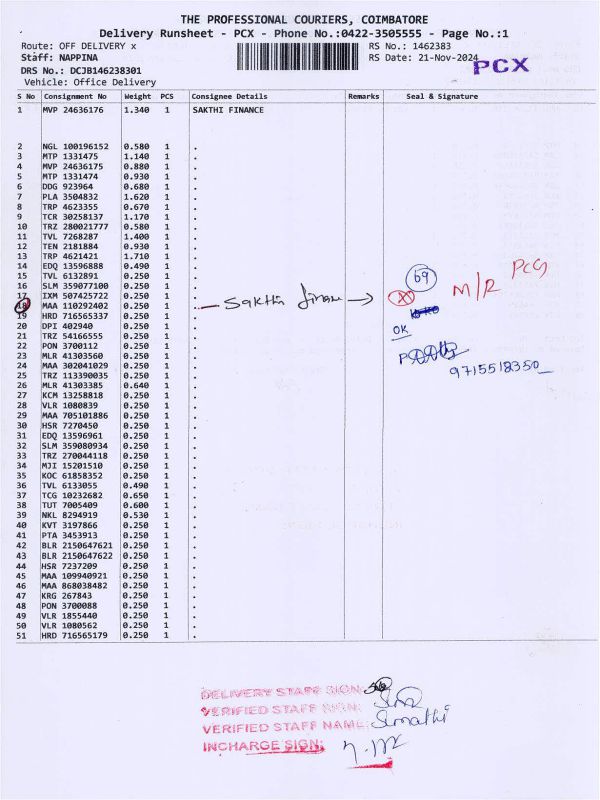 THE PROFESSIONAL COURIERS, COIMBATORE
Delivery Runsheet - PCX - Phone No.:0422-3505555 - Page No.:1
Route: OFF DELIVERY x RS No.: 1462383
Staff: NAPPINA RS Date: 21-Nov-2024
DRS No.: DCJB146238301 PCX
Vehicle: Office Delivery
S No Consignment No Weight PCS Consignee Details Remarks Seal & Signature
1 MVP 24636176 1.340 1 SAKTHI FINANCE
2 NGL 100196152 0.580 1 .
3 MTP 1331475 1.140 1 .
4 MVP 24636175 0.880 1 .
5 MTP 1331474 0.930 1 .
6 DDG 923964 0.680 1 .
7 PLA 3504832 1.620 1 .
8 TRP 4623355 0.670 1 .
9 TCR 30258137 1.170 1 .
10 TRZ 280021777 0.580 1 .
11 TVL 7268287 1.400 1 .
12 TEN 2181884 0.930 1 .
13 TRP 4621421 1.710 1 .
14 EDQ 13596888 0.490 1 .
15 TVL 6132891 0.250 1 . 69
16 SLM 359077100 0.250 1 . M/R PCS
17 IXM 507425722 0.250 1 .
18 MAA 110292402 0.250 1 . Sakthi finance
19 HRD 716565337 0.250 1 .
20 DPI 402940 0.250 1 . OK
21 TRZ 54166555 0.250 1 .
22 PON 3700112 0.250 1 .
23 MLR 41303560 0.250 1 .
24 MAA 302041029 0.250 1 . 9715518350
25 TRZ 113390035 0.250 1 .
26 MLR 41303385 0.640 1 .
27 KCM 13258818 0.250 1 .
28 VLR 1080839 0.250 1 .
29 MAA 705101886 0.250 1 .
30 HSR 7270450 0.250 1 .
31 EDQ 13596961 0.250 1 .
32 SLM 359080934 0.250 1 .
33 TRZ 270044118 0.250 1 .
34 MJI 15201510 0.250 1 .
35 KOC 61858352 0.250 1 .
36 TVL 6133055 0.490 1 .
37 TCG 10232682 0.650 1 .
38 TUT 7005409 0.600 1 .
39 NKL 8294919 0.530 1 .
40 KVT 3197866 0.250 1 .
41 PTA 3453913 0.250 1 .
42 BLR 2150647621 0.250 1 .
43 BLR 2150647622 0.250 1 .
44 HSR 7237209 0.250 1 .
45 MAA 109940921 0.250 1 .
46 MAA 868038482 0.250 1 .
47 KRG 267843 0.250 1 .
48 PON 3700088 0.250 1 .
49 VLR 1855440 0.250 1 .
50 VLR 1080562 0.250 1 .
51 HRD 716565179 0.250 1 .
DELIVERY STAFF SIGN:
VERIFIED STAFF SIGN:
VERIFIED STAFF NAME: Sumathi
INCHARGE SIGN: